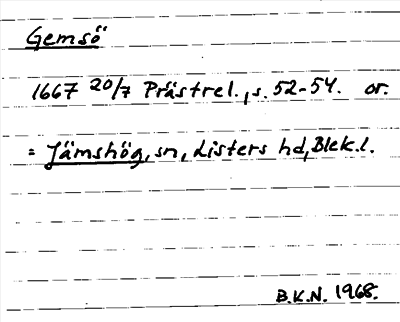 Gemsö
1667 20/7 Prästrel., s. 52-54. or.
= Jämshög, sn, Listers hd, Blek.l.
B.K.N. 1968.